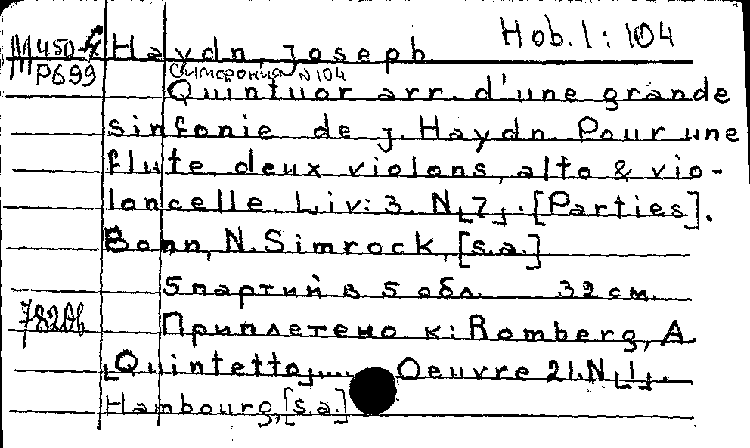 Hob. I: 104
M450-4 Haydn, Joseph
P699 Симфония N 104
Quintuor arr. d'une grande
sinfonie de J. Haydn. Pour une
flute, deux violons, alto & vio-
loncelle. Liv: 3. N[7]. [Parties].
Bonn, N. Simrock, [s.a.]
5 партий в 5 обл. 32 см.
Приплетено к: Romberg, A.
[Quintetto].... Oeuvre 21. N[1].
Hambourg, [s.a.]